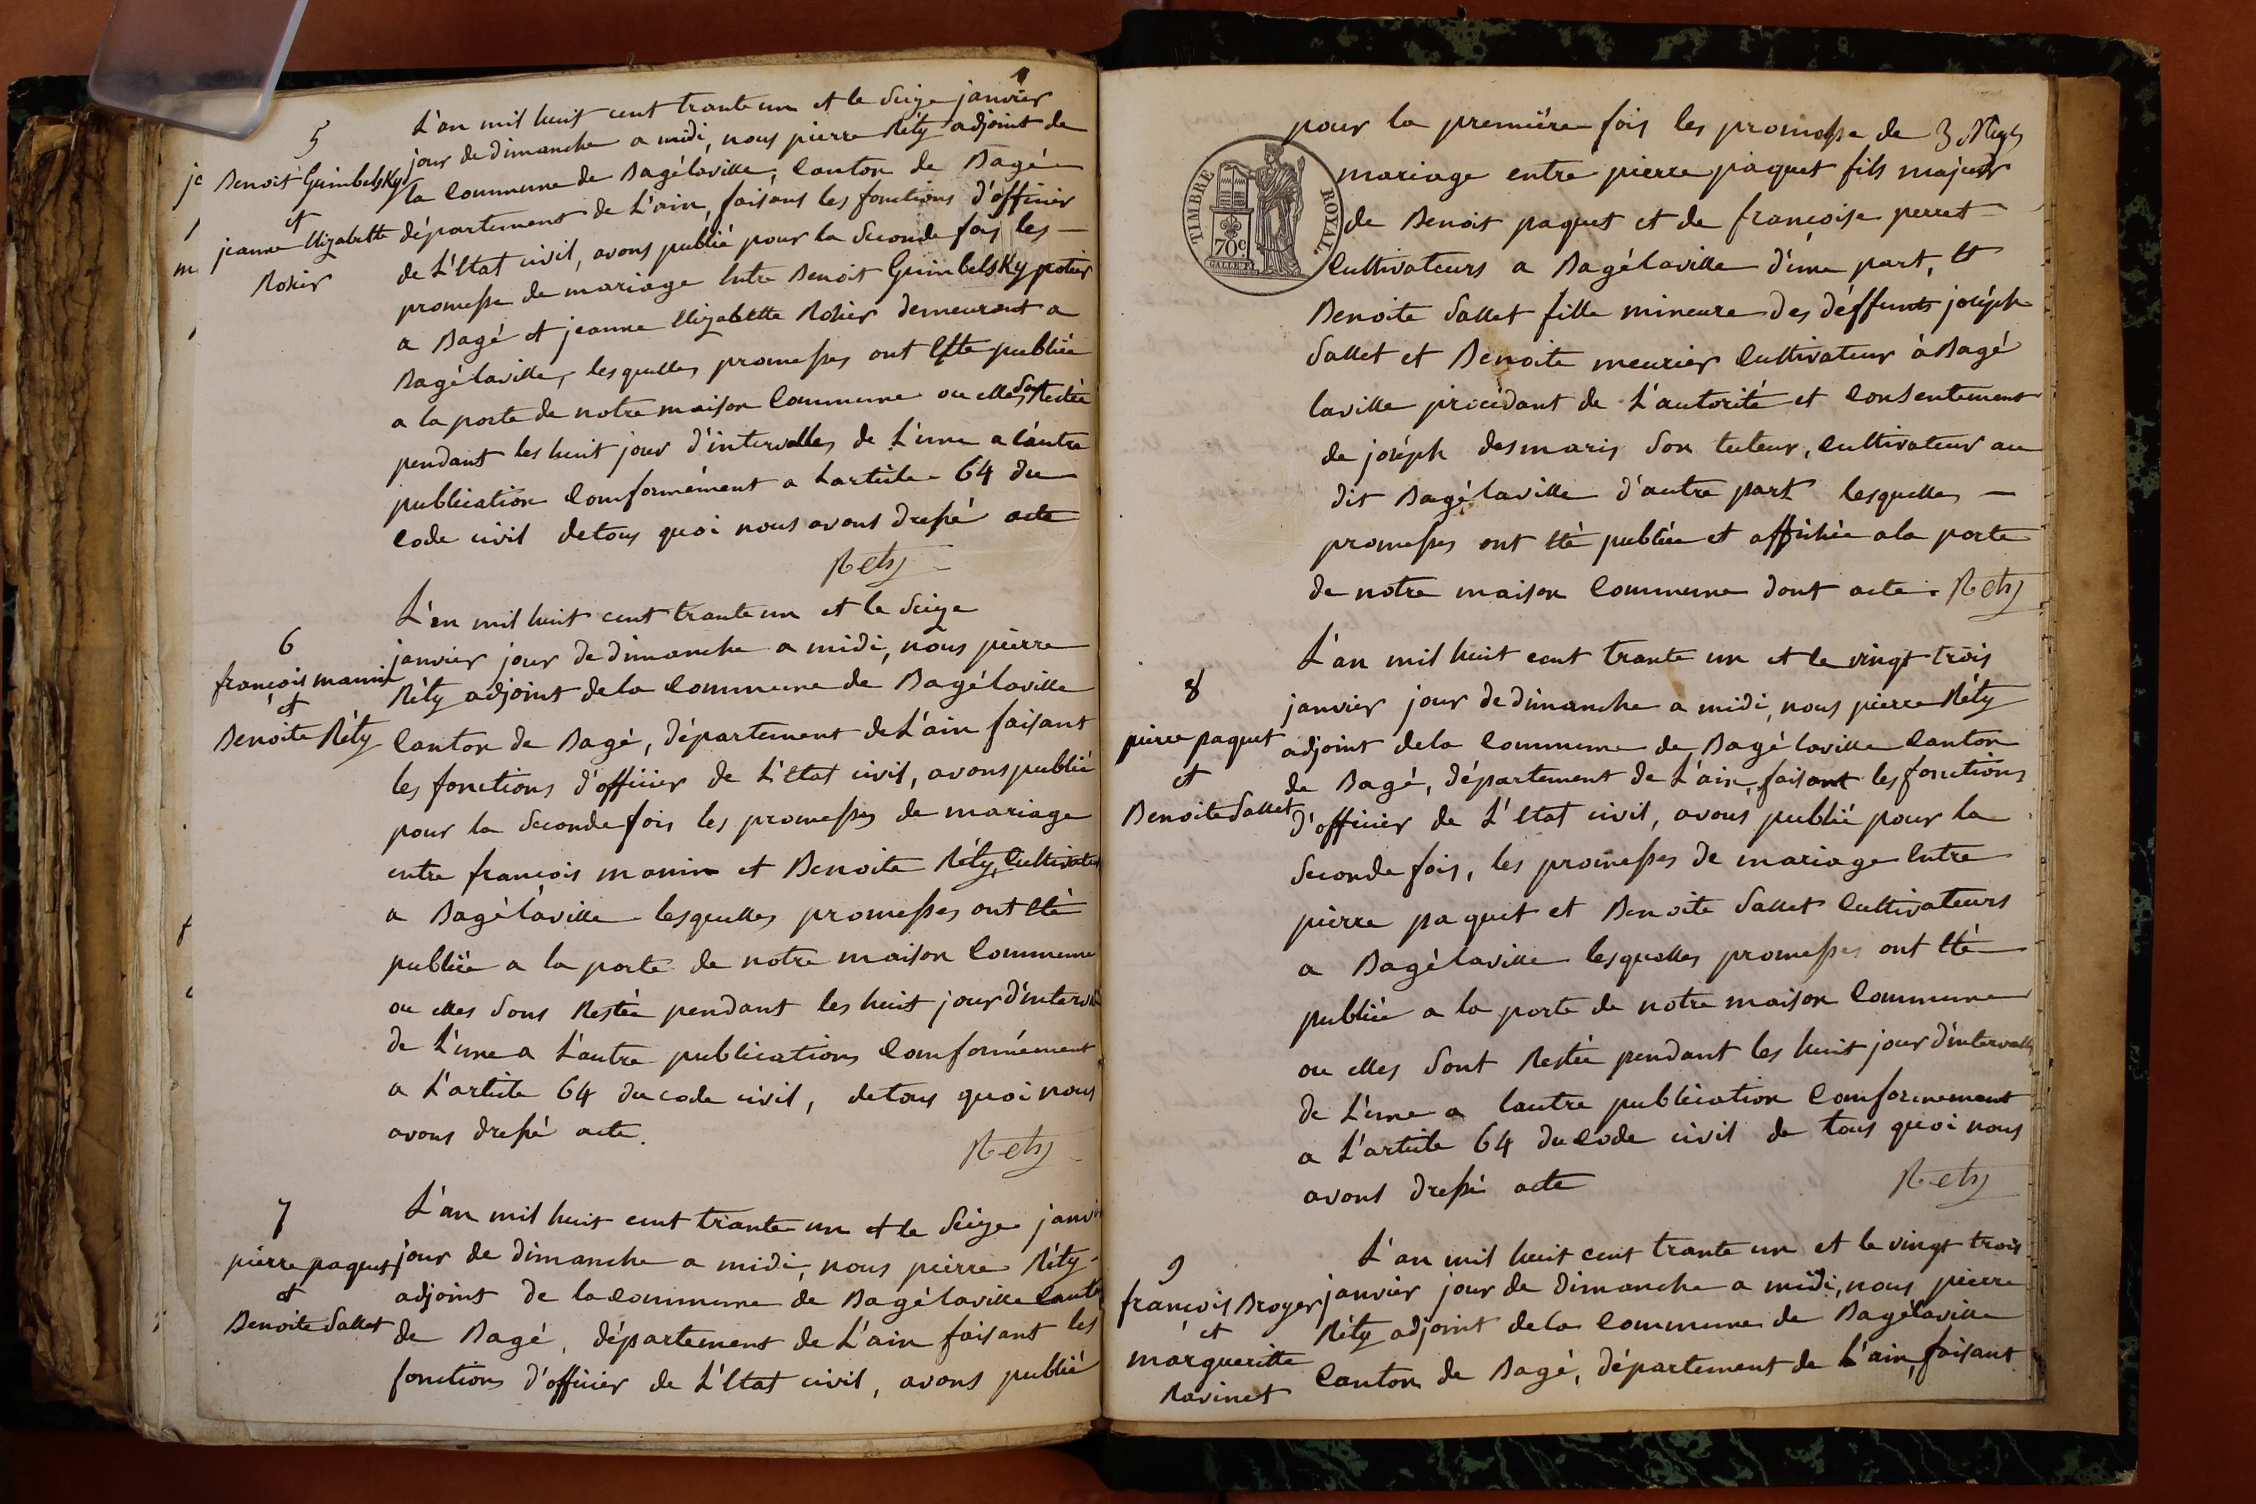 5
Benoit Guimbelsky
et
jeanne Elizabette
Rosier
L'an mil huit cent trante un et le seize janvier
jour de dimanche a midi, nous pierre Réty adjoint de
la Commune de Bagélaville, Canton de Bagé
département de L'ain, faisans les fonctions d'officier
de L'Etat civil, avons publié pour la seconde fois les
promesse de mariage Entre Benoit Guimbelsky potier
a Bagé et jeanne Elizabette Rosier demeurant a
Bagélaville, lesquelles promesses ont Etté publiée
a la porte de notre maison Commune ou elles sont Restée
pendant les huit jour d'intervalles de L'une a l'autre
publication Comformément a Larticle 64 du
Code civil detous quoi nous avons dressé acte
Rety
6
françois manin
et
Benoite Réty
L'an mil huit cent trante un et le seize
janvier jour de dimanche a midi, nous pierre
Réty adjoint dela Commune de Bagélaville
Canton de Bagé, département de L'ain faisant
les fonctions d'officier de L'Etat civil, avons publié
pour la seconde fois les promesses de mariage
entre françois manin et Benoite Réty, Cultivateurs
a Bagélaville lesquelles promesses ont Eté
publiée a la porte de notre maison Commune
ou elles sont Restée pendant les huit jour d'interval
de L'une a L'autre publications Comformément
a L'article 64 du code civil, detous quoi nous
avons dressé acte.
Rety
7
pierre paquet
et
Benoite Sallet
L'an mil huit cent trante un et le seize janvi
jour de dimanche a midi, nous pierre Réty
adjoint de la Commune de Bagélaville Canto
de Bagé, département de L'ain faisant les
fonctions d'officier de L'Etat civil, avons publié
TIMBRE ROYAL
70c
pour la première fois les promesse de
mariage entre pierre paquet fils majeur
de Benoit paquet et de françoise perret
Cultivateurs a Bagélaville d'une part, Et
Benoite Sallet fille mineure des déffunts joséph
Sallet et Benoite meurier Cultivateur à Bagé
laville procédant de L'autorité et Consentement
de joséph desmaris son tuteur, Cultivateur au
dit Bagélaville d'autre part lesquelles
promesses ont Eté publiée et affichée a la porte
de notre maison Commune dont acte. Rety
8
pierre paquet
et
Benoite Sallet
L'an mil huit cent trante un et le vingt trois
janvier jour de dimanche a midi, nous pierre Réty
adjoint dela Commune de Bagélaville Canton
de Bagé, département de L'ain, faisant les fonctions
d'officier de L'Etat civil, avons publié pour la
seconde fois, les promesses de mariage Entre
pierre paquet et Benoite Sallet Cultivateurs
a Bagélaville lesquelles promesses ont Eté
publiée a la porte de notre maison Commune
ou elles sont Restée pendant les huit jour d'intervalle
de L'une a lautre publication Comformement
a L'article 64 du Code civil de tous quoi nous
avons dressé acte
Rety
9
françois Broyer
et
margueritte
Ravinet
L'an mil huit cent trante un et le vingt trois
janvier jour de dimanche a midi, nous pierre
Réty adjoint dela Commune de Bagélaville
Canton de Bagé, département de L'ain, faisant